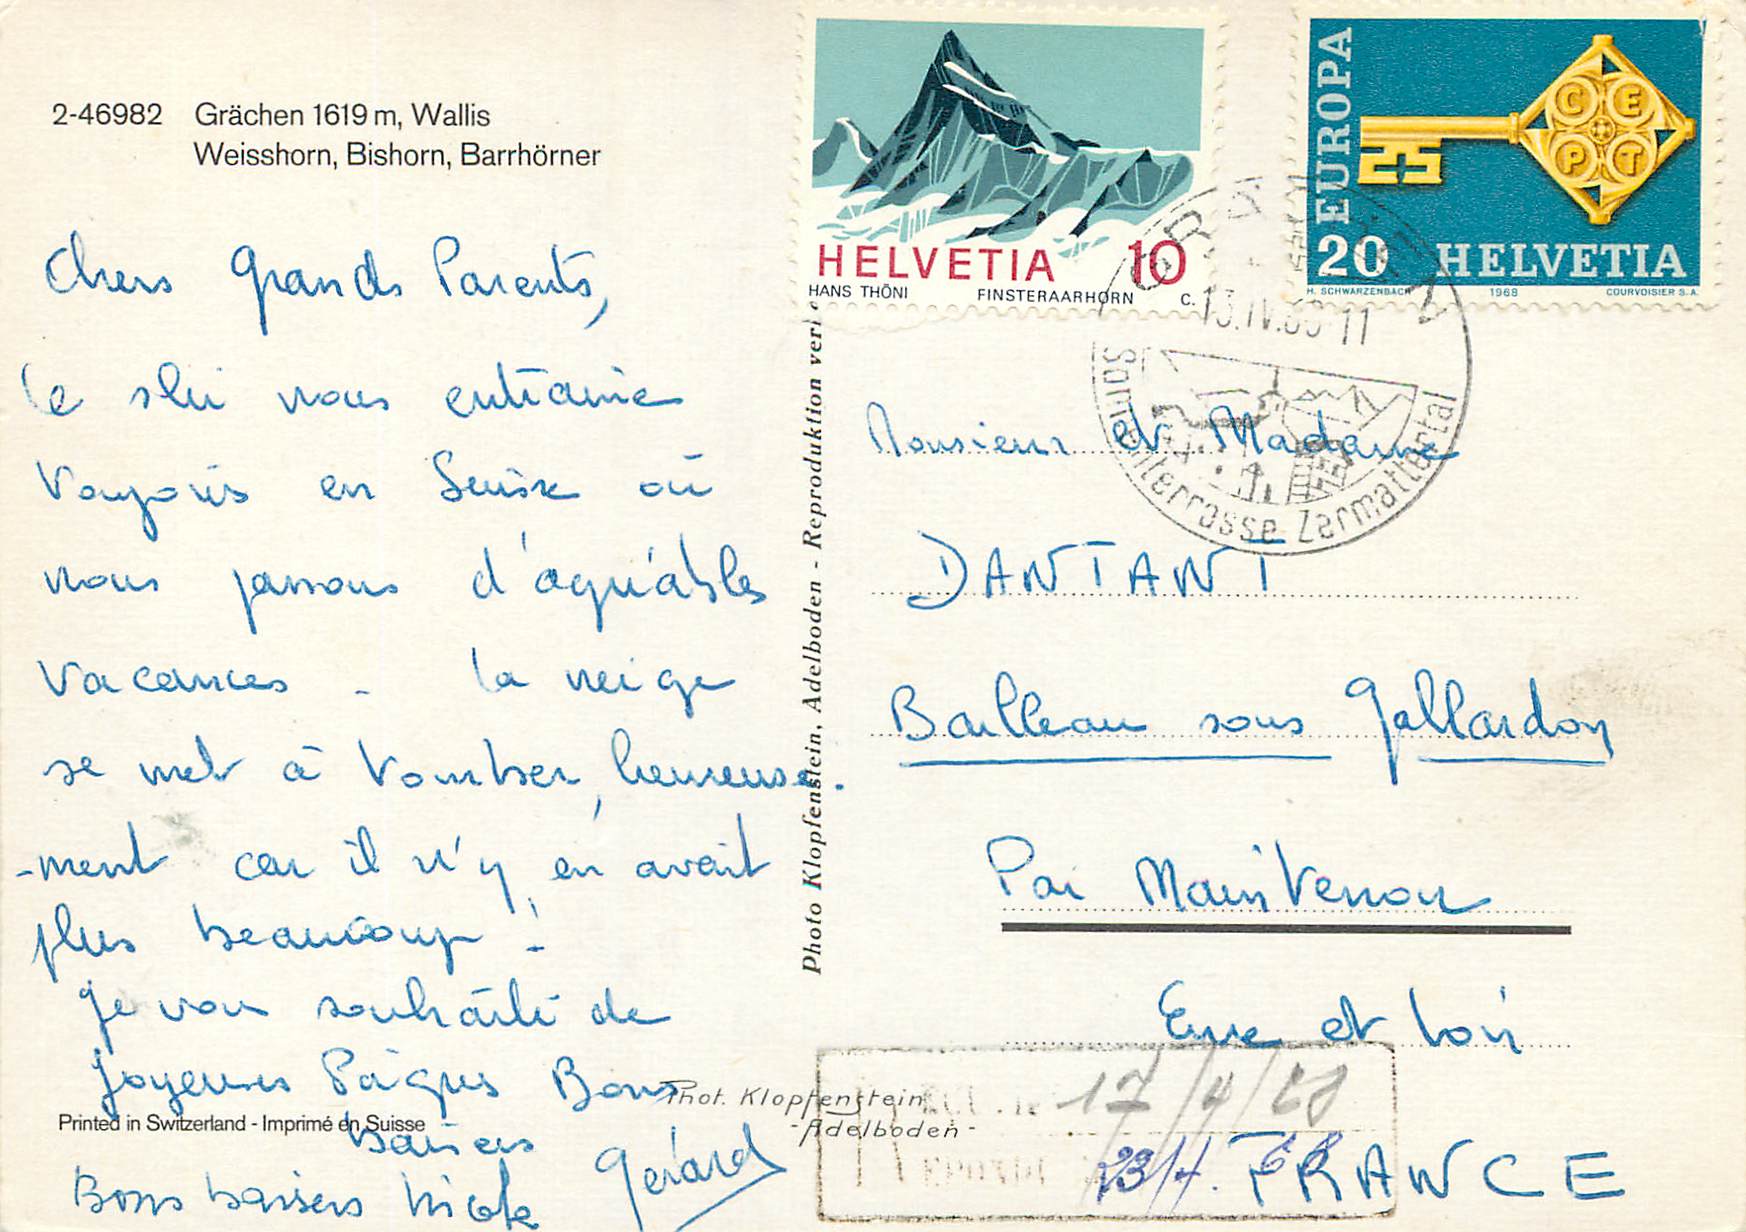 2-46982 Grächen 1619 m, Wallis
Weisshorn, Bishorn, Barrhörner
Chers Grands Parents,
Le ski nous entraine
toujours en Suisse où
nous passons d'agréables
vacances - La neige
se met à tomber, heureuse-
-ment car il n'y en avait
plus beaucoup !
Je vous souhaite de
Joyeuses Pâques Bons
baisers
Gérard
Bons baisers Nicole
Printed in Switzerland - Imprimé en Suisse
Phot. Klopfenstein
- Adelboden -
Photo Klopfenstein, Adelboden - Reproduktion verb
HELVETIA 10
HANS THÖNI FINSTERAARHORN C.
EUROPA
CEPT
20 HELVETIA
H. SCHWARZENBACH 1968 COURVOISIER S.A.
13.IV.68-11
Sonnenterrasse Zermattertal
Monsieur et Madame
DANTANT
Bailleau sous Gallardon
Par Maintenon
Eure et Loir
17/4/68
23/4. 68
FRANCE